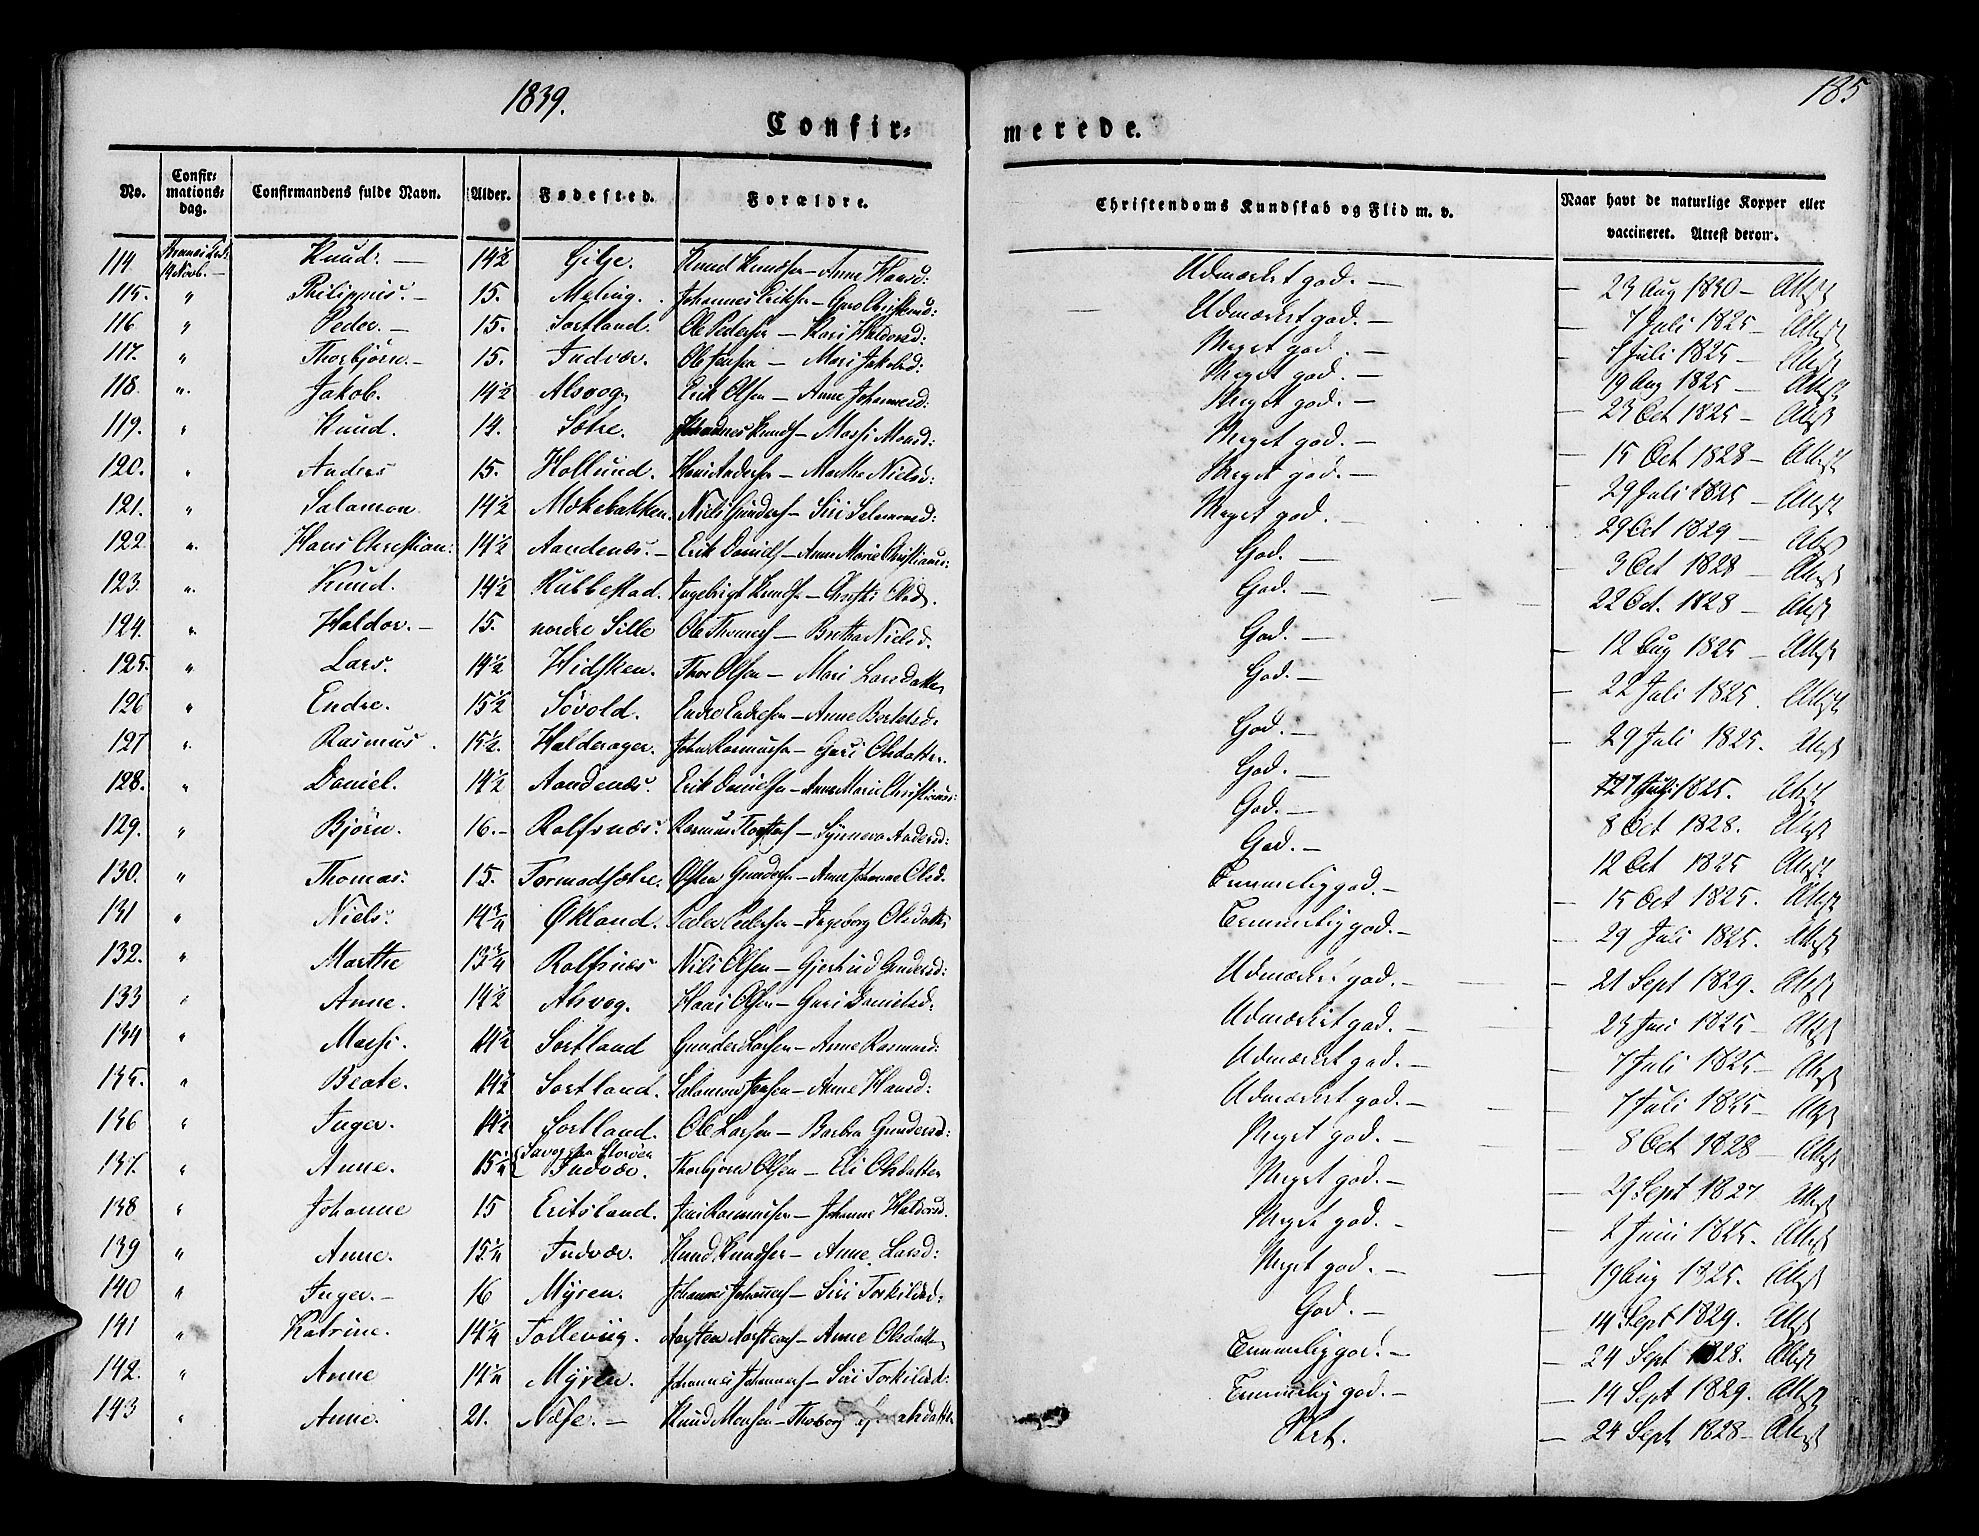 1839.
185
Confir=
merede.
No. Confir=mations=dag. Confirmandens fulde Navn. Alder. Fødested. Forældre. Christendoms Kundskab og Flid m. v. Naar havt de naturlige Kopper eller vaccineret. Attest derom.
114 Knud. — 14½ Gilje. Knud Knudsen — Anne Hansd: Udmærket god. — 23 Aug 1830 — Attest
115. " Philippus. — 15. Meling. Johannes Eriksen — Udmærket god. — 7 Juli 1825 — Attest
116. " Peder. — 15. Sortland. Ole Pedersen — Kari Haldorsd: Meget god. — 7 Juli 1825 — Attest
117. " Thorbjørn. — 15. Indvær. Ole Jensen — Mari Jakobsd: Meget god. — 19 Aug 1825 — Attest
118. " Jakob. 14½ Alsvog. Erik Olsen — Anne Johannesd: Meget god. — 23 Oct 1825 — Attest
119. " Knud. 14. Sætre. Johannes Knuds — Massi Monsd: Meget god. — 15 Oct 1828 — Attest
120. " Anders 15. Hollund. Hans Andersen — Marthe Nielsd: Meget god. — 29 Juli 1825 — Attest
121. " Salamon. 14½ Mokebakken. Niels Gunders — Siri Salamonsd: Meget god. — 29 Oct 1829 — Attest
122. " Hans Christian: 14½ Aandenæs. — Erik Daniels — Anne Marie Christians: God. — 3 Oct 1828 — Attest
123. " Knud. 14½ Rubbestad. Ingebrigt Knudsen — Christi Olsd. God. — 22 Oct. 1828 — Attest
124. " Haldor. — 15. nordre Sille Ole Thomes — Berthe Nielsd. God. — 12 Aug 1825 — Attest
125. " Lars. 14½ Hidsken. Thor Olsen — Mari Larsdatter God. — 22 Juli 1825. Attest
126 " Endre. 15½ Søvold. Endre Endresen — Anne Bertelsd. God. — 29 Juli 1825. Attest
127 " Rasmus. 15½. Halderager. John Rasmusen — Guri Olsdatter. God. — 1825. Attest
128. " Daniel. 14½ Aandenæs. Erik Danielsen — Anne Marie Christians: God. — 8 Oct 1828. Attest
129. " Bjørn. 16. — Rolfsnæs. Rasmus — Synneva Andersd: God. — 12 Oct 1825 Attest
130. " Thomas. 15. Tormodsætre. Østen Gunders — Anne Johanne Olsd. Temmelig god. — 15 Oct 1825. Attest
131 " Niels. 14¾ Økland. Peder Pedersen — Ingeborg Olsdatter Temmelig god. — 29 Juli 1825. Attest
132. " Marthe 13¾ Rolfsnæs Nils Olsen — Gjertrud Gundersd: Udmærket god. — 21 Sept 1829. Attest
133 " Anne. 14½ Alsvog. Hans Olsen — Guri Danielsd: Udmærket god. — 23 Juni 1825 — Attest
134 " Massi. 14½ Sortland Gunder Larsen — Anne Rasmusd: Udmærket god. — 7 Juli 1825 — Attest
135. " Beate. 14½ Sortland. Salamon Jensen — Anne Hansd: Udmærket god. — 7 Juli 1825 — Attest
136 " Inger. 14½ Sortland. Ole Larsen — Barbra Gundersd: Meget god. — 8 Oct 1828 — Attest
137. " Anne. 15¼ Indvær. Thorbjørn Olsen — Eli Olsdatter Meget god. — 29 Sept 1827 Attest
138 " Johanne 15 Eritsland. Jens Rasmussen — Johanne Haldorsd. Meget god. — 2 Juni 1825. Attest
139 " Anne. 15¼ Indvær. Knud Knudsen — Anne Larsd: Meget god. — 19 Aug 1825. Attest
140 " Inger. — 16 Myren. Johannes Johannes — Siri Torkildsd: God. — 14 Sept 1829. Attest
141 " Katrine. 14¼ Tolleviig. Aarsten Aarstens — Anne Olsdatter Temmelig god. — 24 Sept 1828. Attest
142. " Anne 14¼ Myren. Johannes Johannes — Siri Torkildsd: Temmelig god. — 14 Sept 1829. Attest
143 " Anne. 21. Næse. — Knud Monsen — Thorborg Slet. 24 Sept 1828 — Attest